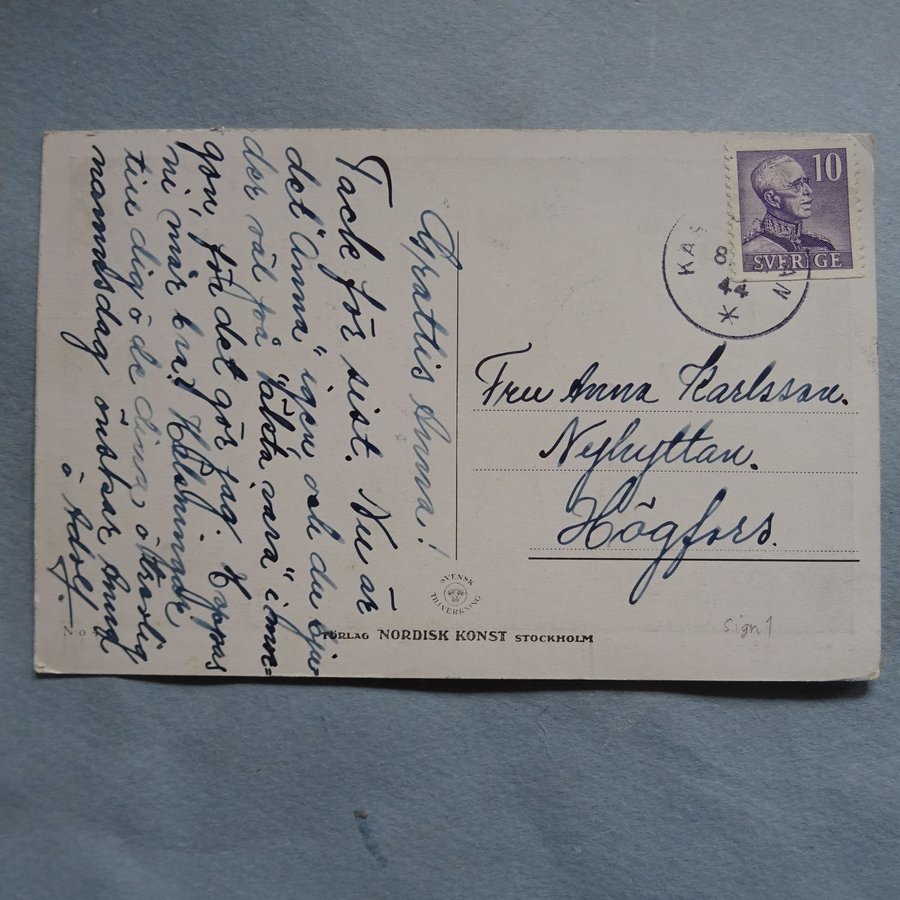 Grattis Anna!
Tack för sist. Nu är
det "Anna" igen och du bju-
der väl på
gon, för det gör jag. Hoppas
ni mår bra? Hälsningar
till dig o de dina o trevlig
namnsdag önskar
o Adolf.
10
SVERIGE
KA
8
44
AN
Fru Anna Karlsson.
Nyhyttan.
Högfors.
SVENSK
TILLVERKNING
No
FÖRLAG NORDISK KONST STOCKHOLM
Sign 1